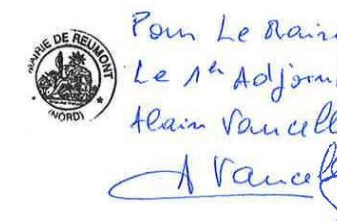 MAIRIE DE REUMONT
(NORD)
Pour Le Mair
Le 1er Adjoin
Alain Vancell
A Vancell